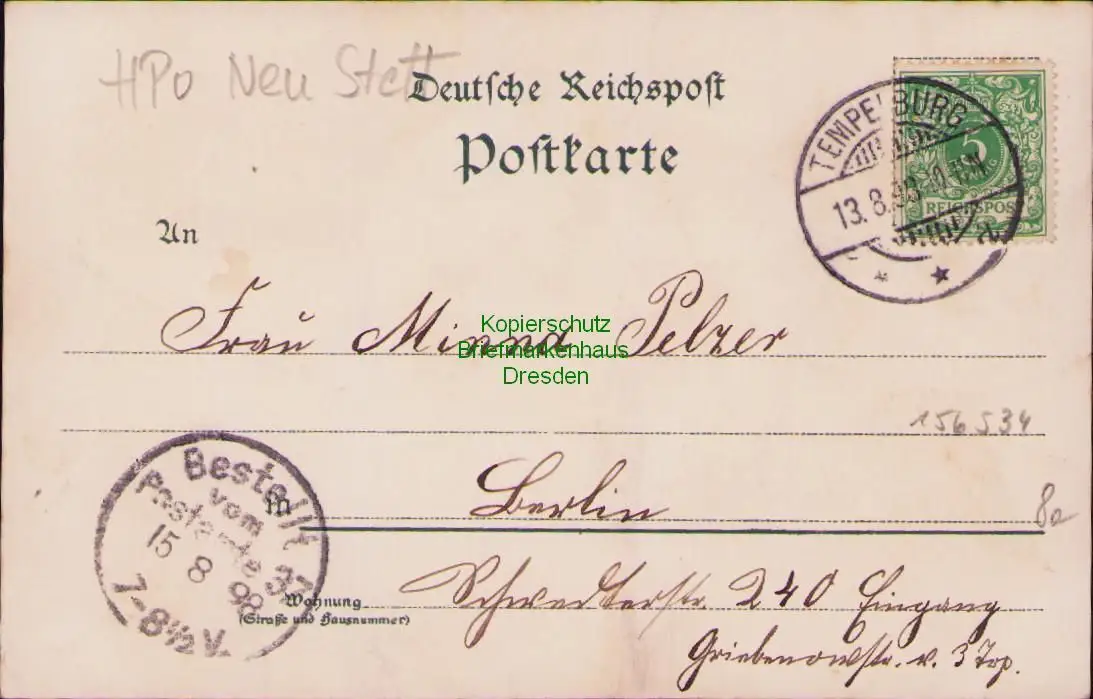 HPo Neu Stett
Deutsche Reichspost
Postkarte
TEMPELBURG
13.8.98
5
REICHSPOST
* *
An
Frau Minna Pelzer
Kopierschutz
Briefmarkenhaus
Dresden
156534
in Berlin
80
Bestellt
vom
Postamte 37
15 8 98
7-8½V.
Wohnung
(Straße und Hausnummer)
Schwedterstr. 240 Eingang
Griebenowstr. v. 3 Trp.